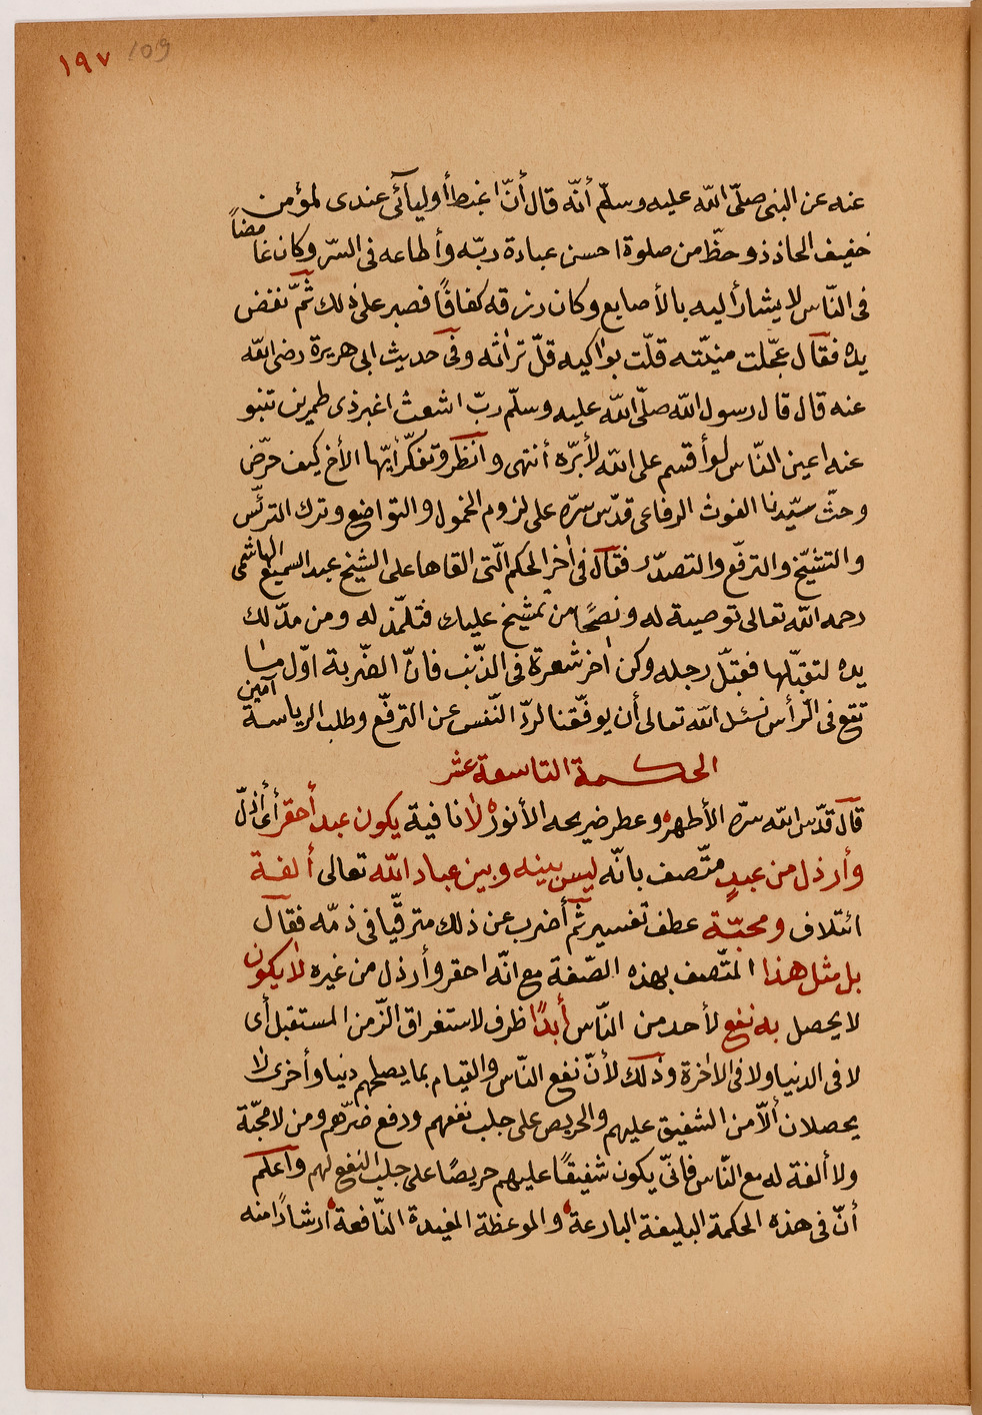 ١٩٧ 109
عنه عن النبى صلّى الله عليه وسلّم أنّه قال أنّ اغبط أوليآئى عندى لمؤمن
خفيف الحاذ ذو حظّ من صلوة احسن عبادة ربّه وأطاعه فى السّر وكان غامضاً
فى النّاس لا يشار أليه بالأصابع وكان رزقه كفافًا فصبر على ذلك ثمّ نفض
يده فقال عجّلت منيّته قلّت بواكيه قلّ تراثه وفى حديث ابى هريرة رضى الله
عنه قال قال رسول الله صلّى الله عليه وسلّم ربّ اشعث اغبر ذى طمرين تنبو
عنه اعين النّاس لو أقسم على الله لأبرّه أنتهى وانظر وتفكّر ايّها الأخ كيف حرّض
وحثّ سيّدنا الغوث الرفاعى قدّس سرّه على لزوم الخمول والتواضع وترك الترئّس
والتشيّخ والترفّع والتصدّر فقال فى أخر الحكم الّتى القاها على الشيخ عبد السميع الهاشمى
رحمه الله تعالى توصية له ونصحًا من تمشيخ عليك فتلمّذ له ومن مدّ لك
يده لتقبّلها فقبّل رجله وكن اخر شعرة فى الذّنب فانّ الضّربة اوّل ما
تقع فى الرّأس نسئل الله تعالى أن يوفّقنا لردّ النّفس عن الترفّع وطلب الرياسة آمين
الحكمة التاسعة عشر
قال قدّس الله سرّه الأطهر وعطر ضريحه الأنور لا نافية يكون عبد أحقر أى أذلّ
وأرذل من عبدٍ متّصف بانّه ليس بينه وبين عباد الله تعالى ألفة
ائتلاف ومحبّة عطف تفسير ثمّ أضرب عن ذلك مترقّيا فى ذمّه فقال
بل مثل هذا المتّصف بهذه الصّفة مع انّه احقر وأرذل من غيره لا يكون
لا يحصل به نفع لأحد من النّاس أبدًا ظرف لاستغراق الزّمن المستقبل أى
لا فى الدنيا ولا فى الاخرة وذلك لأنّ نفع النّاس والقيام بما يصلحهم دنيا وأخرى لا
يحصلان ألاّ من الشفيق عليهم والحريص على جلب نفعهم ودفع ضرّهم ومن لا محبّة
ولا ألفة له مع النّاس فانّى يكون شفيقًا عليهم حريصًا على جلب النفع لهم واعلم
أنّ فى هذه الحكمة البليغة البارعة والموعظة المفيدة النّافعة ارشادًا منه